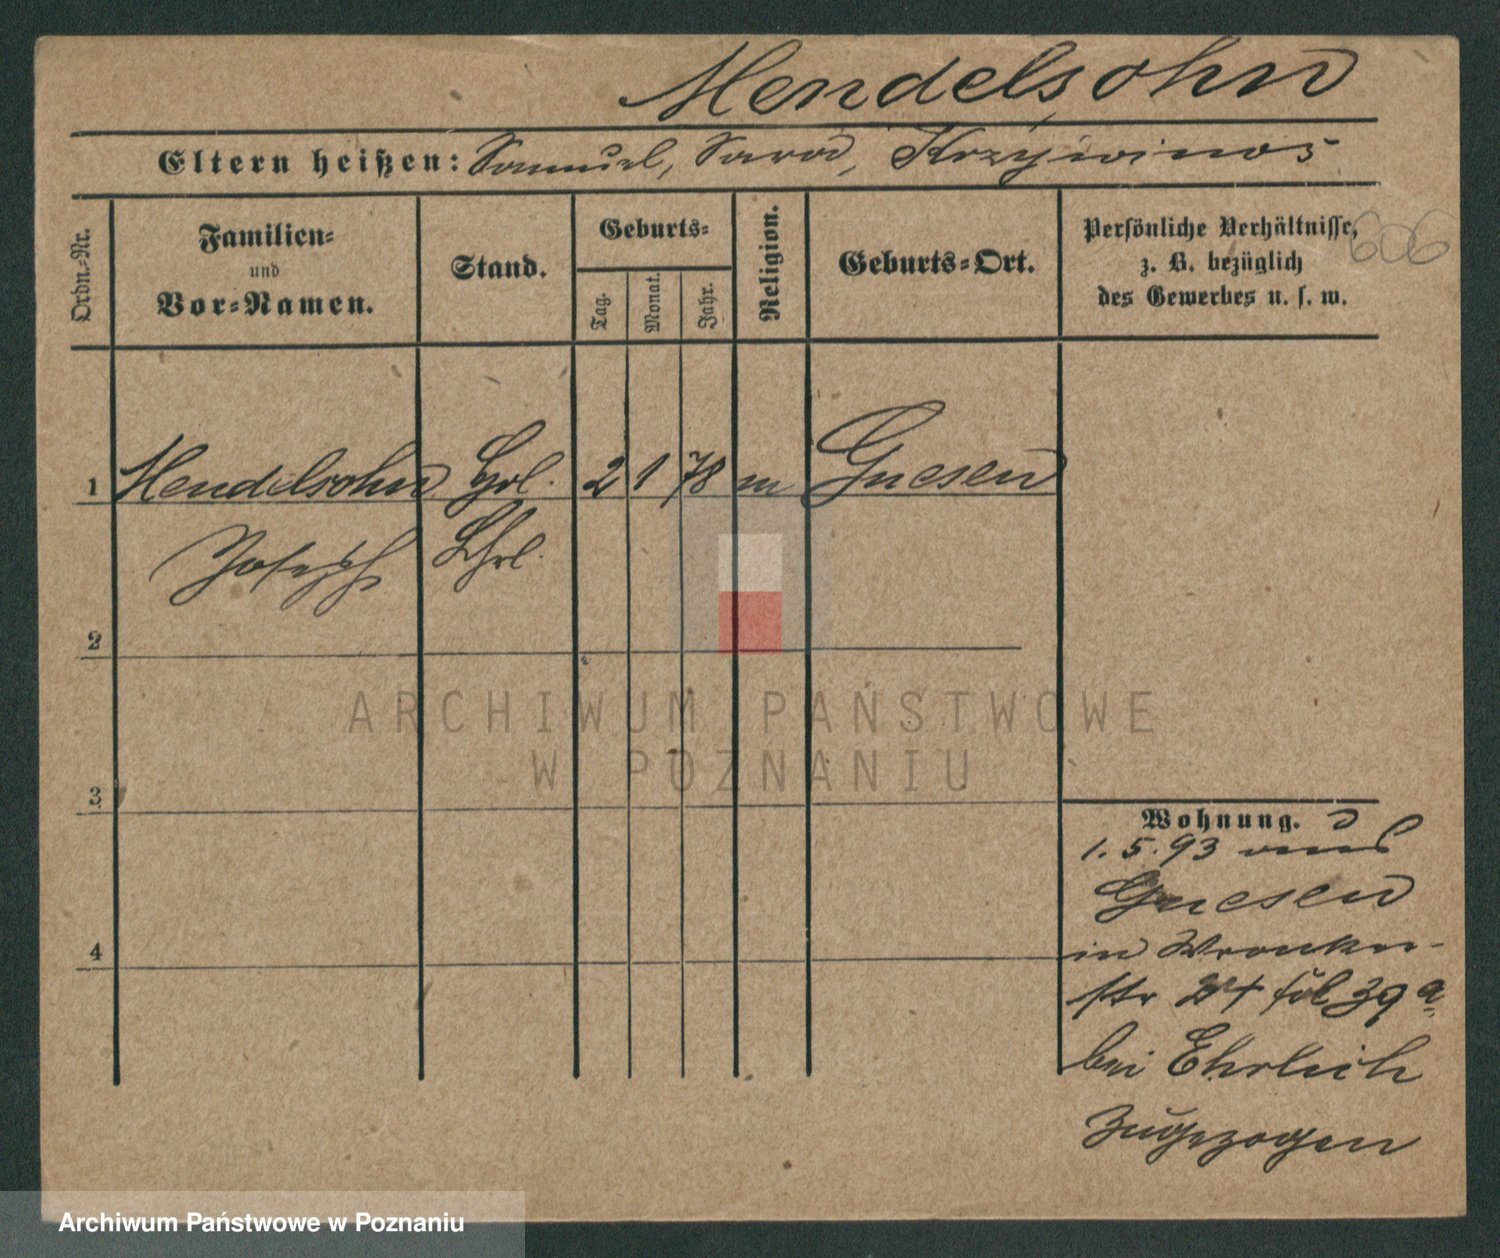 Mendelsohn
Eltern heißen: Samuel, Sara,
Ordn.-Nr.
Familien-
und
Vor-Namen.
Stand.
Geburts-
Tag.
Monat.
Jahr.
Religion.
Geburts-Ort.
Persönliche Verhältnisse,
z. B. bezüglich
des Gewerbes u. s. w.
606
1 Mendelsohn 2 1 78 m Gnesen
Joseph Lhrl.
2
3
4
Wohnung.
1. 5. 93 aus
Gnesen
in Wronker-
str fol 39 a
bei Ehrlich
zugezogen
ARCHIWUM PAŃSTWOWE
W POZNANIU
Archiwum Państwowe w Poznaniu